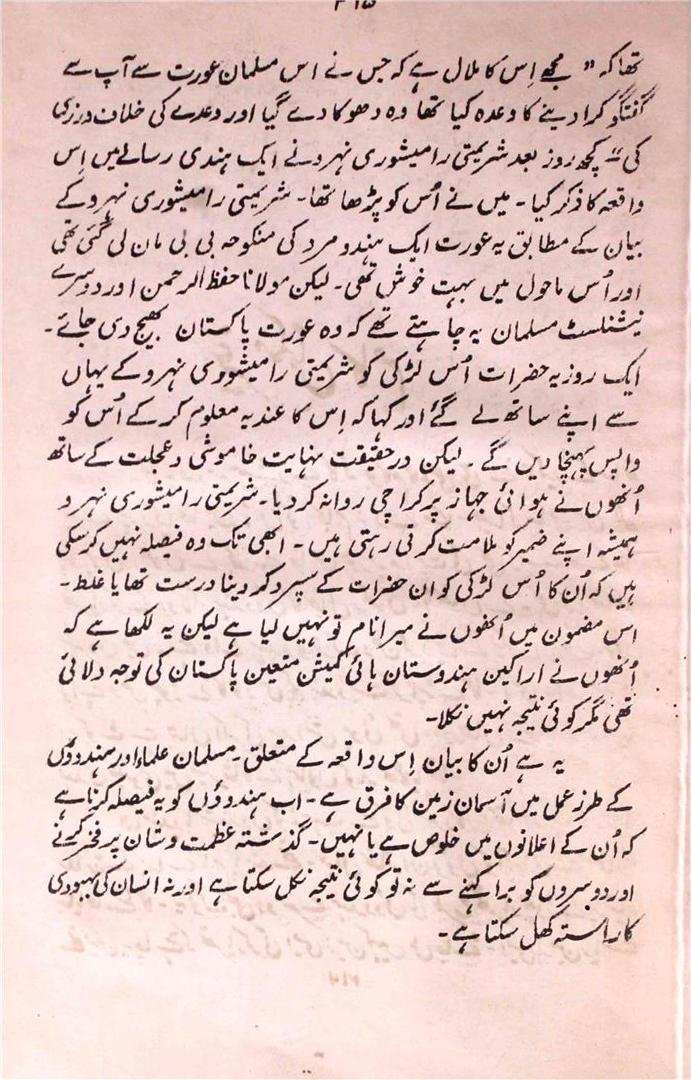 ۳۱۵
تھا کہ " مجھے اِس کا ملال ہے کہ جس نے اس مسلمان عورت سے آپ سے
گفتگو کرا دینے کا وعدہ کیا تھا وہ دھوکا دے گیا اور وعدے کی خلاف ورزی
کی " کچھ روز بعد شریمتی رامیشوری نہرو نے ایک ہندی رسالے میں اِس
واقعہ کا ذکر کیا ۔ میں نے اُس کو پڑھا تھا ۔ شریمتی رامیشوری نہرو کے
بیان کے مطابق یہ عورت ایک ہندو مرد کی منکوحہ بی بی مان لی گئی تھی
اور اُس ماحول میں بہت خوش تھی ۔ لیکن مولانا حفظ الرحمن اور دوسرے
نیشنلسٹ مسلمان یہ چاہتے تھے کہ وہ عورت پاکستان بھیج دی جائے ۔
ایک روز یہ حضرات اُس لڑکی کو شریمتی رامیشوری نہرو کے یہاں
سے اپنے ساتھ لے گئے اور کہا کہ اِس کا عندیہ معلوم کر کے اُس کو
واپس پہنچا دیں گے ۔ لیکن درحقیقت نہایت خاموشی و عجلت کے ساتھ
اُنھوں نے ہوائی جہاز پر کراچی روانہ کر دیا ۔ شریمتی رامیشوری نہرو
ہمیشہ اپنے ضمیر کو ملامت کرتی رہتی ہیں ۔ ابھی تک وہ فیصلہ نہیں کر سکی
ہیں کہ اُن کا اُس لڑکی کو ان حضرات کے سپرد کر دینا درست تھا یا غلط ۔
اس مضمون میں اُنھوں نے میرا نام تو نہیں لیا ہے لیکن یہ لکھا ہے کہ
اُنھوں نے اراکین ہندوستان ہائی کمیشن متعین پاکستان کی توجہ دلائی
تھی مگر کوئی نتیجہ نہیں نکلا ۔
یہ ہے اُن کا بیان اِس واقعہ کے متعلق ۔ مسلمان علماء اور ہندوؤں
کے طرز عمل میں آسمان زمین کا فرق ہے ۔ اب ہندوؤں کو یہ فیصلہ کرنا ہے
کہ اُن کے اعلانوں میں خلوص ہے یا نہیں ۔ گذشتہ عظمت و شان پر فخر کرنے
اور دوسروں کو برا کہنے سے نہ تو کوئی نتیجہ نکل سکتا ہے اور نہ انسان کی بہبودی
کا راستہ کھل سکتا ہے ۔